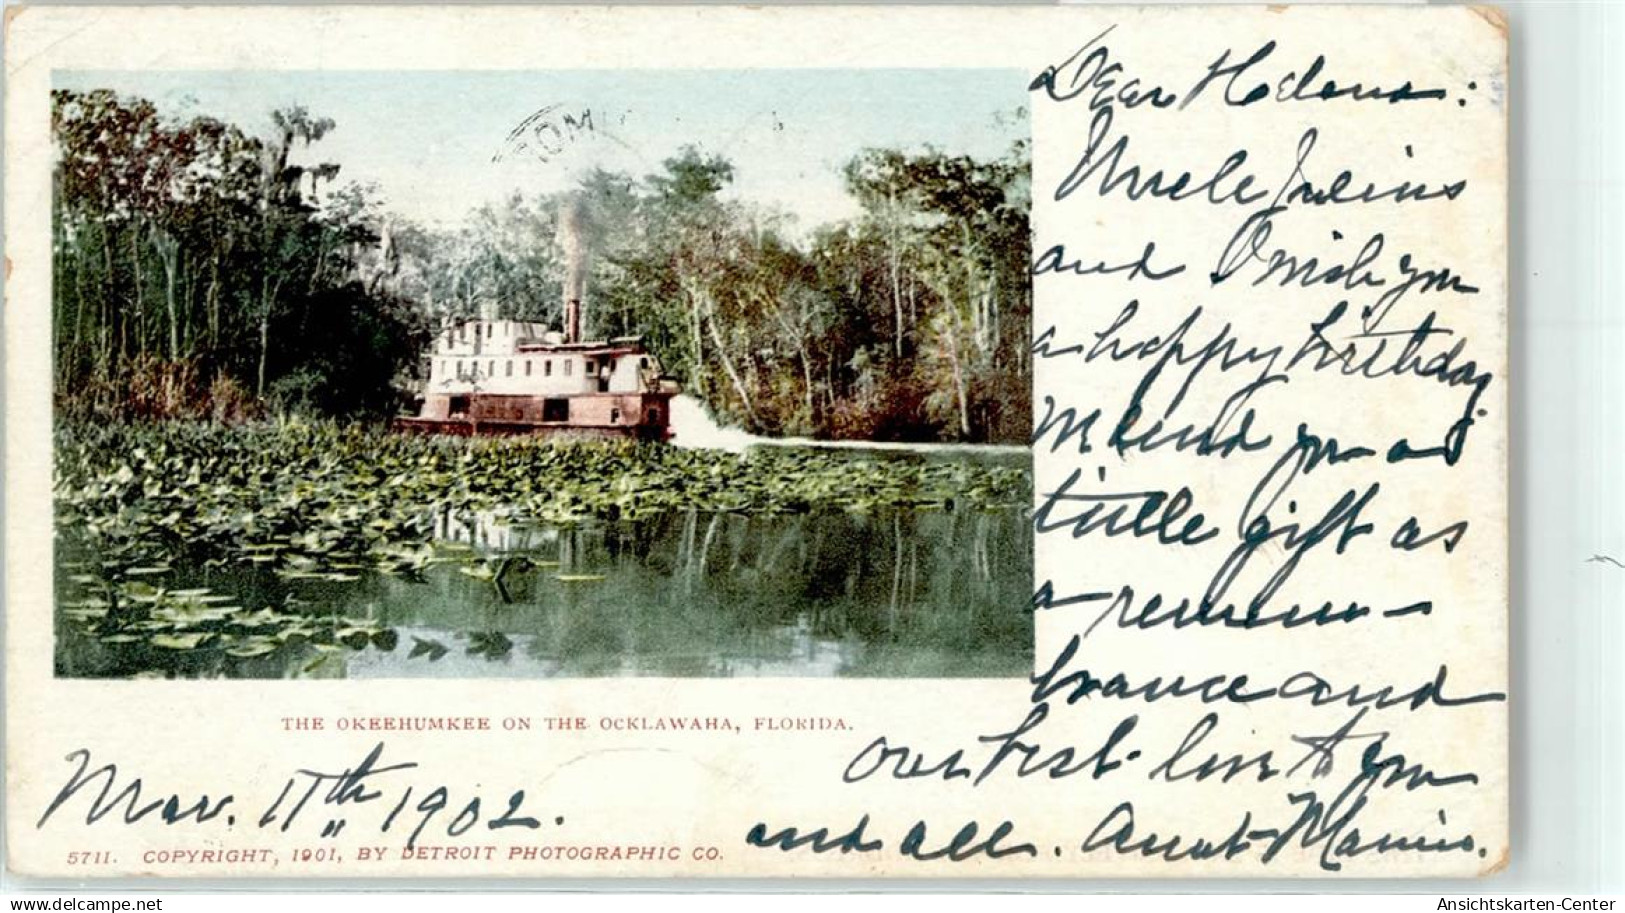 Dear Helena:
Uncle Julius
and I wish you
a happy birthday
We send you a
little gift as
a remem-
brance and
our best love to you
and all. Aunt Mamie.
THE OKEEHUMKEE ON THE OCKLAWAHA, FLORIDA.
Mar. 11th 1902.
5711. COPYRIGHT, 1901, BY DETROIT PHOTOGRAPHIC CO.
www.delcampe.net
Ansichtskarten-Center